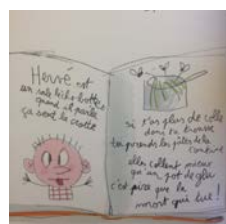 Hervé est
un sale lèche-bottes
quand il parle
ça sent la crotte
si t'as plus de colle
dans ta trousse
prends les pâtes de la
cantine
elles collent mieux
qu'un pot de glu
c'est pire que la
mort qui tue !